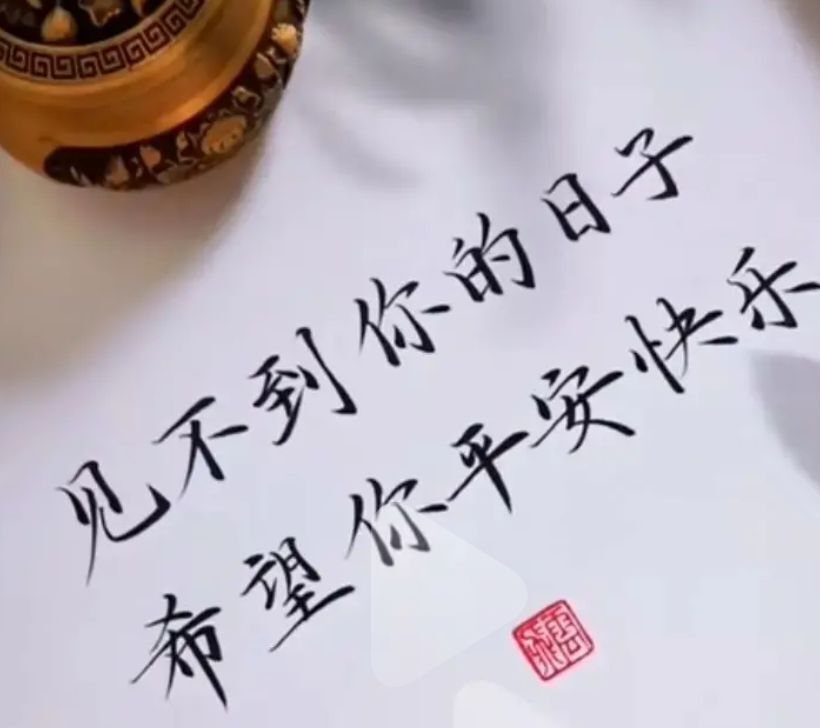 见不到你的日子
希望你平安快乐